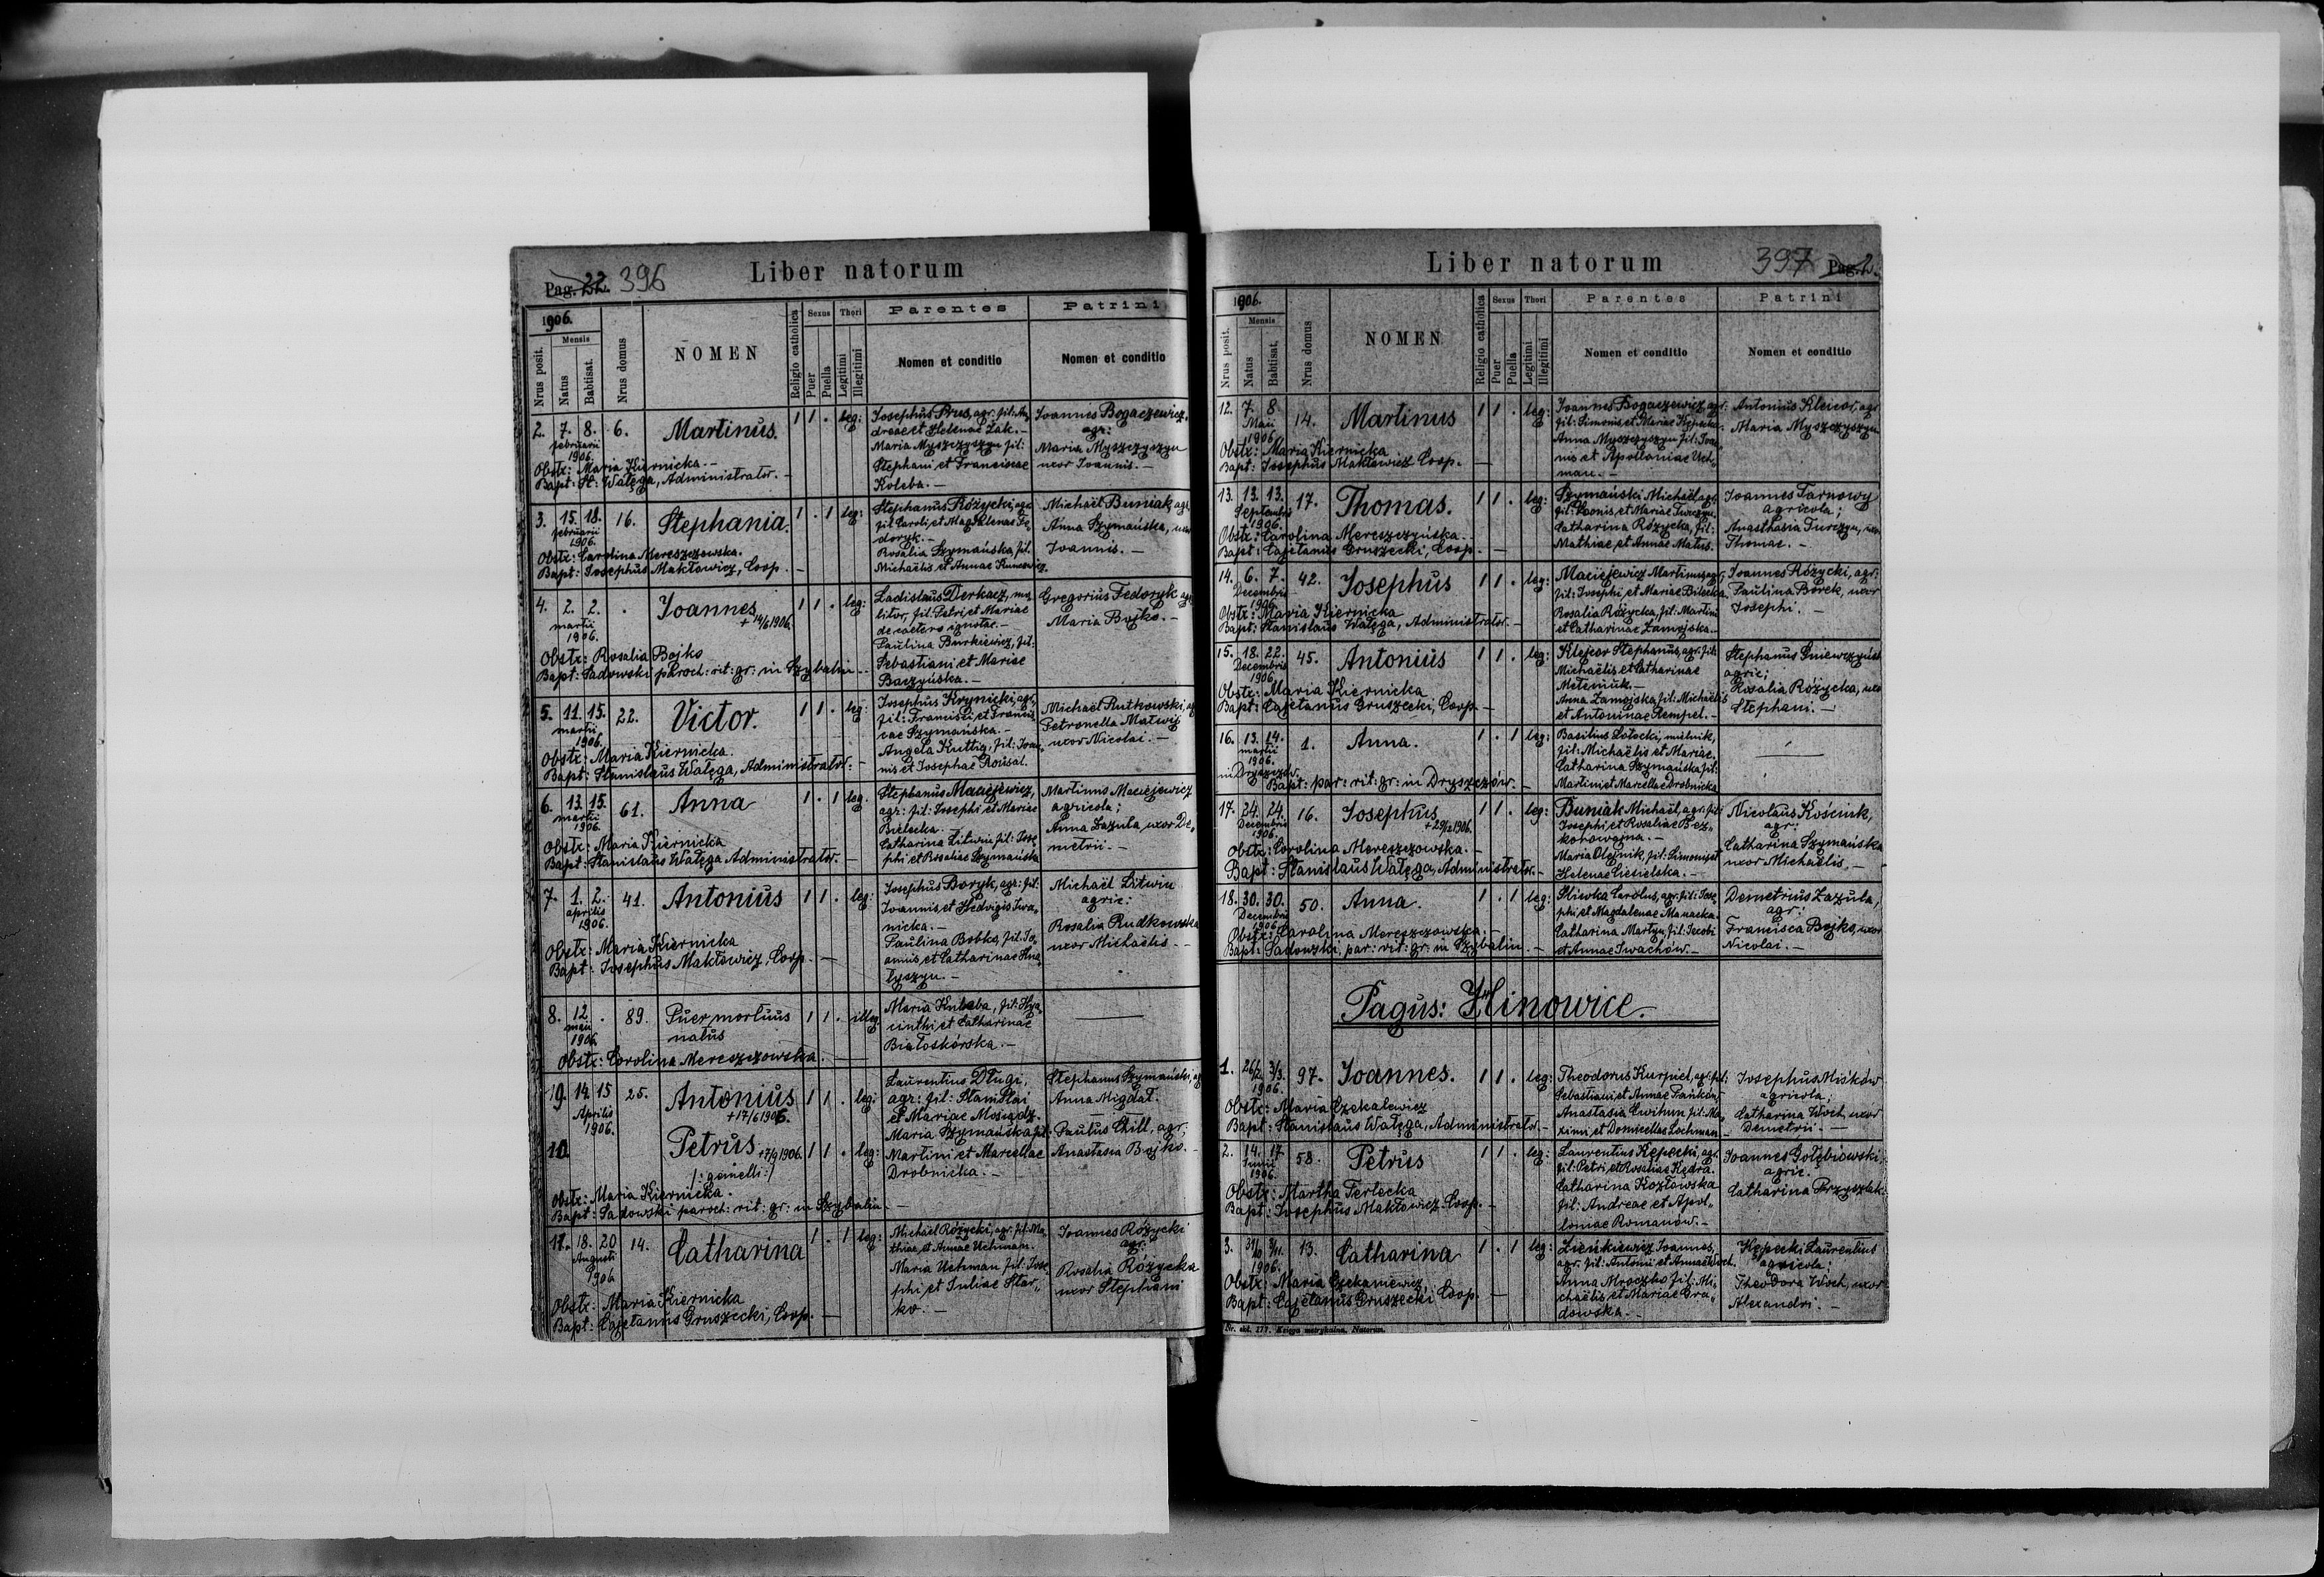 Pag. 22. 396
Liber natorum
1906.
Nrus posit.
Mensis
Natus
Babtisat.
Nrus domus
NOMEN
Religio catholica
Sexus
Puer
Puella
Thori
Legitimi
Illegitimi
Parentes
Nomen et conditio
Patrini
Nomen et conditio
2. 7. 8. 6. Martinus. 1 1 . leg:
februarii
1906.
Obstr: Maria Kiernicka. -
Bapt: St: Wałęga, Administrator. -
Josephus Prus, agr: fil: An
dreae et Helenae Żak. -
Maria Myszczyszyn fil:
Stephani et Franciscae
Koleba. -
Joannes Bogaczewicz.
agr:
Maria Myszczyszyn
uxor Joannis. -
3. 15. 18. 16. Stephania. 1 . 1 leg:
februarii
1906.
Obstr: Carolina Mereszczowska.
Bapt: Josephus Makłowicz, Coop. -
Stephanus Różycki, agr
fil Caroli, et Magdalenae Fe
doryk. -
Rosalia Szymańska fil.
Michaëlis et Annae
Michaël Buniak agr
Anna Szymańska, uxor
Joannis. -
4. 2. 2. . Joannes 1 1 . leg:
+ 14/6 1906.
martii
1906.
Obstr: Rosalia Bojko
Bapt: Sadowski paroch: rit: gr: in Szybalin -
Ladislaus Derkacz, mi
litor, fil. Petri et Mariae
de caetero ignotae. -
Paulina Burkiewicz, fil:
Sebastiani et Mariae
Baczyńska. -
Gregorius Fedoryk agr
Maria Bojko. -
5. 11. 15. 22. Victor. 1 1 . leg:
martii
1906.
Obstr: Maria Kiernicka.
Bapt: Stanislaus Wałęga, Administrator. -
Josephus Krynicki, agr,
fil: Francisci et Francis
cae Szymańska. -
Angela Kuttig, fil: Joan
nis et Josephae Rousal.
Michaël Rutkowski, ag
Petronella Matwij
uxor Nicolai. -
6. 13. 15. 61. Anna 1 . 1 leg.
martii
1906.
Obstr: Maria Kiernicka
Bapt: Stanislaus Wałęga Administrator. -
Stephanus Maciejewicz,
agr: fil: Josephi et Mariae
Bielecka. -
Catharina Litwin fil: Jose
phi et Rosaliae Szymańska
Martinus Maciejewicz
agricola;
Anna Zazula, uxor De„
metrii. -
7. 1. 2. 41. Antonius 1 1 . leg:
aprilis
1906.
Obstr: Maria Kiernicka
Bapt: Josephus Makłowicz, Coop. -
Josephus Boryk, agr: fil:
Joannis et Hedvigis Iwa„
nicka. -
Paulina Bobka, fil: Jo„
annis et Catharinae Hna
tyszyn. -
Michaël Litwin
agric:
Rosalia Rudkowska
uxor Michaëlis. -
8. 12 . 89. Puer mortuus 1 1 . illeg
natus
maii
1906.
Obstr: Carolina Mereszczowska. -
Maria Kuleba, fil: Hya„
cinthi et Catharinae
Białoskórska. -
9. 14. 15 25. Antonius 1 1 . leg:
+ 17/6 1906.
Aprilis
1906.
10. Petrus +7/9 1906. 1 1 . leg:
/: gemelli :/
Obstr: Maria Kiernicka.
Bapt: Sadowski paroch: rit: gr: in Szybalin. -
Laurentius Długi,
agr: fil: Stanislai
et Mariae Mosiądz.
Maria Szymańska fil:
Martini et Marcellae
Drobnicka. -
Stephanus Szymański, ag
Anna Migdał.
Paulus Chill, agr;
Anastasia Bojko. -
11. 18. 20 14. Catharina 1 . 1 leg:
Augusti
1906
Obstr: Maria Kiernicka
Bapt: Cajetanus Gruszecki, Coop. -
Michaël Różycki, agr: fil: Ma
thiae et Annae Uchman.
Maria Uchman fil: Jose
phi et Juliae Star„
ko. -
Joannes Różycki
agr:
Rosalia Różycka
uxor Stephani
Liber natorum
397 Pag. 2.
1906.
Nrus posit.
Mensis
Natus
Babtisat.
Nrus domus
NOMEN
Religio catholica
Sexus
Puer
Puella
Thori
Legitimi
Illegitimi
Parentes
Nomen et conditio
Patrini
Nomen et conditio
12. 7. 8 14. Martinus 1 1 . leg:
Maii
1906
Obstr: Maria Kiernicka
Bapt: Josephus Makłowicz Coop. -
Joannes Bogaczewicz agr:
fil: Simonis et Mariae Kępecka.
Anna Myszczyszyn fil: Joan
nis et Apolloniae Uch„
man. -
Antonius Klejcor, agr
Maria Myszczyszyn
13. 13. 13. 17. Thomas. 1 1 . leg:
Septembris
1906.
Obstr: Carolina Mereszczyńska. -
Bapt: Cajetanus Gruszecki, Coop. -
Szymański Michaël, agr
fil: Leonis, et Mariae Turczyn.
Catharina Różycka, fil:
Mathiae et Annae Matus.
Joannes Tarnowy
agricola;
Anasthasia Turczyn, uxor
Thomae. -
14. 6. 7. 42. Josephus 1 1 . leg:
Decembris
1906.
Obstr: Maria Kiernicka
Bapt: Stanislaus Wałęga, Administrator. -
Maciejewicz Martinus, agr,
fil: Josephi, et Mariae Bilecka.
Rosalia Różycka, fil: Martini
et Catharinae Zamojska. -
Joannes Różycki, agr:
Paulina Borek, uxor
Josephi. -
15. 18. 22. 45. Antonius 1 1 . leg:
Decembris
1906.
Obstr: Maria Kiernicka
Bapt: Cajetanus Gruszecki, Coop. -
Klejcor Stephanus, agr. fil:
Michaëlis et Catharinae
Meteniuk. -
Anna Zamojska, fil: Michaëlis
et Antoninae Rempel. -
Stephanus Gniewczyński
agric;
Rosalia Różycka, uxo
Stephani. -
16. 13. 14. 1. Anna. 1 . 1 leg:
martii
1906.
in Dryszczów.
Bapt: par: rit: gr: in Dryszczów. -
Basilius Łotocki, mielnik,
fil: Michaëlis et Mariae.
Catharina Szymańska fil:
Martini et Marcellae Drobnicka
17. 24. 24. 16. Josephus 1 1 . leg:
+29/12 1906.
Decembris
1906.
Obstr: Carolina Mereszczowska. -
Bapt: Stanislaus Wałęga, Administrator. -
Buniak Michaël, agr: fil:
Josephi et Rosaliae Bez„
korowajna. -
Maria Olejnik, fil: Simonis et
Helenae Ciesielska. -
Nicolaus Kościuk,
agr:
Catharina Szymańska
uxor Michaëlis. -
18. 30. 30. 50. Anna. 1 . 1 leg:
Decembris
1906
Obstr: Carolina Mereszczowska. -
Bapt: Sadowski, par: rit: gr: in Szybalin. -
Śliwka Carolus, agr. fil: Jose
phi, et Magdalenae Manacka.
Catharina Martyn, fil: Jacobi
et Annae Iwachów. -
Demetrius Zazula,
agr:
Francisca Bojko, uxor
Nicolai. -
Pagus: Hlinowice.
1. 26/2. 3/3. 97. Joannes. 1 1 . leg:
1906.
Obstr: Maria Czekalewicz
Bapt: Stanislaus Wałęga, Administrator. -
Theodorus Kurpiel, agr: fil:
Sebastiani et Annae Pańków.
Anastasia Cwihun fil: Ma
ximi et Domicellae Lachman
Josephus Miśków
agricola;
Catharina Woch, uxor
Demetrii. -
2. 14. 17 58. Petrus 1 1 . leg:
Junii
1906
Obstr: Martha Terlecka
Bapt: Josephus Makłowicz Coop. -
Laurentius Kępecki, agr.
fil: Petri, et Rosaliae Kędra.
Catharina Kozłowska
fil: Andreae et Apol„
loniae Romanów. -
Joannes Gołębiowski;
agric.
Catharina Przyszlak:
3. 31/10 3/11. 13. Catharina 1 . 1 leg:
1906.
Obstr: Maria Czekaniewicz
Bapt: Cajetanus Gruszecki Coop. -
Zienkiewicz Joannes,
agr. fil: Antonii et Annae Woch.
Anna Mroczko fil: Mi„
chaëlis et Mariae Gra„
dowska. -
Kępecki Laurentius
agricola;
Theodora Woch, uxor
Alexandri. -
Nr. skł. 177. Księga metrykalna. Natorum.